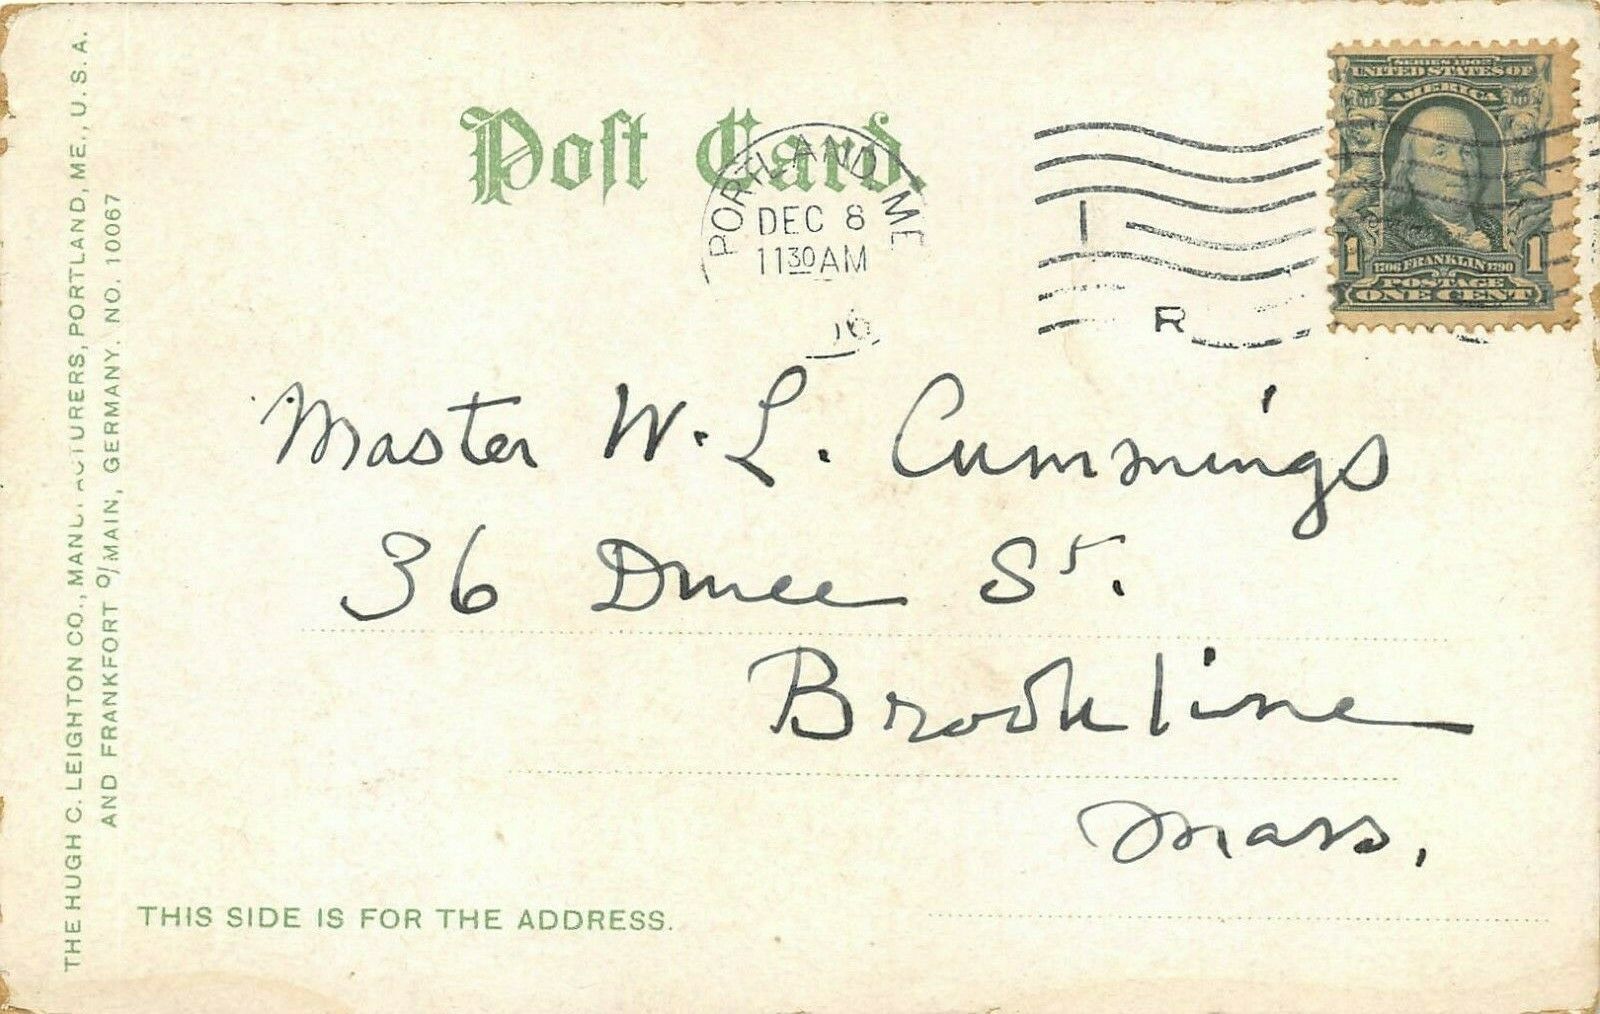 THE HUGH C. LEIGHTON CO., MANUFACTURERS, PORTLAND, ME., U.S.A.
AND FRANKFORT o/MAIN, GERMANY. NO. 10067
Post Card.
PORTLAND ME
DEC 8
11 30 AM
1
R
SERIES 1902
UNITED STATES OF
AMERICA
1 1706 FRANKLIN 1790 1
POSTAGE
ONE CENT
Master W. L. Cummings
36 St.
Brookline
Mass.
THIS SIDE IS FOR THE ADDRESS.